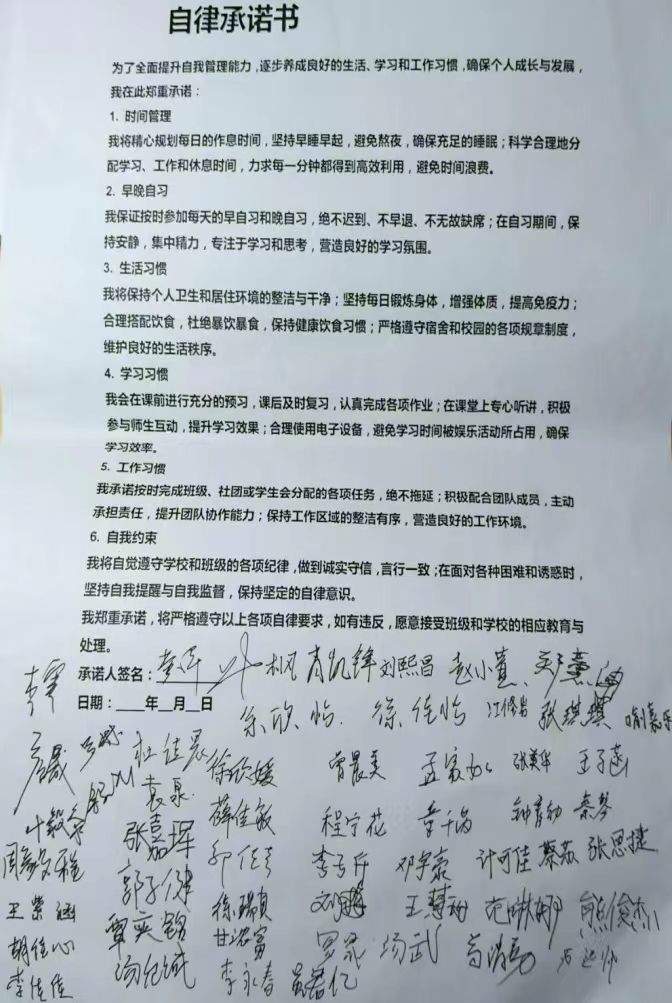 自律承诺书
为了全面提升自我管理能力，逐步养成良好的生活、学习和工作习惯，确保个人成长与发展，
我在此郑重承诺：
1. 时间管理
我将精心规划每日的作息时间，坚持早睡早起，避免熬夜，确保充足的睡眠；科学合理地分
配学习、工作和休息时间，力求每一分钟都得到高效利用，避免时间浪费。
2. 早晚自习
我保证按时参加每天的早自习和晚自习，绝不迟到、不早退、不无故缺席；在自习期间，保
持安静，集中精力，专注于学习和思考，营造良好的学习氛围。
3. 生活习惯
我将保持个人卫生和居住环境的整洁与干净；坚持每日锻炼身体，增强体质，提高免疫力；
合理搭配饮食，杜绝暴饮暴食，保持健康饮食习惯；严格遵守宿舍和校园的各项规章制度，
维护良好的生活秩序。
4. 学习习惯
我会在课前进行充分的预习，课后及时复习，认真完成各项作业；在课堂上专心听讲，积极
参与师生互动，提升学习效果；合理使用电子设备，避免学习时间被娱乐活动所占用，确保
学习效率。
5. 工作习惯
我承诺按时完成班级、社团或学生会分配的各项任务，绝不拖延；积极配合团队成员，主动
承担责任，提升团队协作能力；保持工作区域的整洁有序，营造良好的工作环境。
6. 自我约束
我将自觉遵守学校和班级的各项纪律，做到诚实守信，言行一致；在面对各种困难和诱惑时，
坚持自我提醒与自我监督，保持坚定的自律意识。
我郑重承诺，将严格遵守以上各项自律要求，如有违反，愿意接受班级和学校的相应教育与
处理。
承诺人签名： 肖凯锋 刘熙昌 赵小萱
日期：____年__月__日
徐欣怡 徐佳怡 张琪琪
徐欣媛 曾晨美 张美华
袁泉 薛佳敏 程宁花 秦琴
张嘉珲 邓宇豪 许可佳 蔡茹 张思捷
王紫涵 郭子健 范琳娜 熊俊杰
胡佳心 甘浴富 汤武
李佳佳 李永春